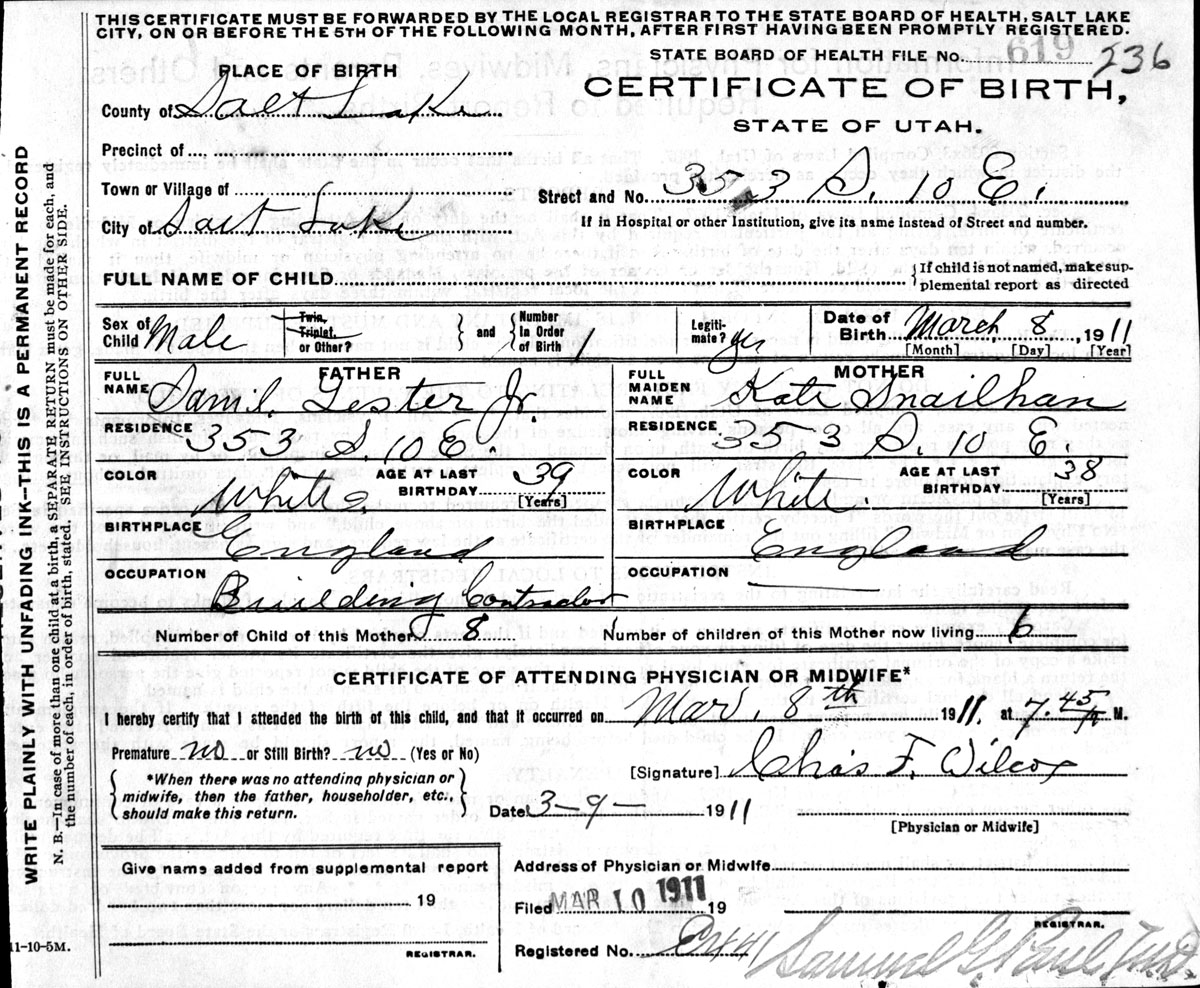 THIS CERTIFICATE MUST BE FORWARDED BY THE LOCAL REGISTRAR TO THE STATE BOARD OF HEALTH, SALT LAKE
CITY, ON OR BEFORE THE 5TH OF THE FOLLOWING MONTH, AFTER FIRST HAVING BEEN PROMPTLY REGISTERED.
STATE BOARD OF HEALTH FILE No. 619 236
PLACE OF BIRTH
CERTIFICATE OF BIRTH,
County of Salt Lake
STATE OF UTAH.
Precinct of
Town or Village of
Street and No. 353 S. 10 E.
City of Salt Lake
[If in hospital or other institution, give its name instead of Street and number.
FULL NAME OF CHILD
{If child is not named, make sup-
plemental report as directed
Sex of Child Male
Twin, Triplet, or Other?
} and {
Number In Order of Birth 1
Legiti-mate? yes
Date of Birth March 8 1911
[Month] [Day] [Year]
FATHER
FULL NAME Saml. Lester Jr.
RESIDENCE 353 S. 10 E.
COLOR White
AGE AT LAST BIRTHDAY 39
[Years]
BIRTHPLACE England
OCCUPATION Building Contractor
MOTHER
FULL MAIDEN NAME Kate Snailhan
RESIDENCE 353 S. 10 E.
COLOR White
AGE AT LAST BIRTHDAY 38
[Years]
BIRTHPLACE England
OCCUPATION
Number of Child of this Mother 8 Number of children of this Mother now living 6
CERTIFICATE OF ATTENDING PHYSICIAN OR MIDWIFE*
I hereby certify that I attended the birth of this child, and that it occurred on Mar. 8th 1911, at 7.45 M.
Premature no or Still Birth? no (Yes or No)
[Signature] Chas F. Wilcox
{ *When there was no attending physician or
midwife, then the father, householder, etc.,
should make this return. }
Date 3-9- 1911
[Physician or Midwife]
Give name added from supplemental report
19
REGISTRAR.
Address of Physician or Midwife
Filed MAR 10 1911 19
REGISTRAR.
Registered No.
Samuel G. Paul
WRITE PLAINLY WITH UNFADING INK--THIS IS A PERMANENT RECORD
N. B.--In case of more than one child at a birth, a SEPARATE RETURN must be made for each, and
the number of each, in order of birth, stated. SEE INSTRUCTIONS ON OTHER SIDE.
11-10-5M.